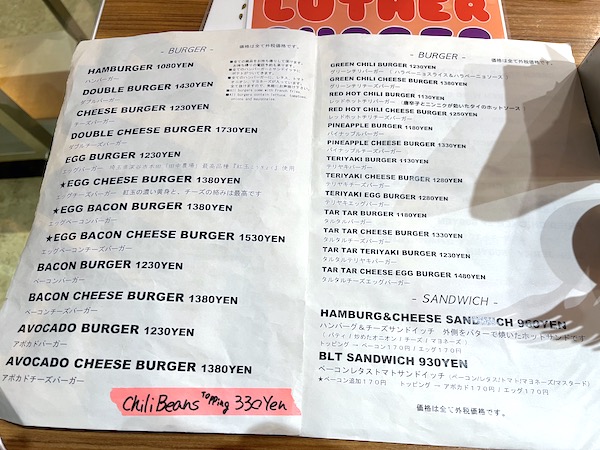 LUTHER
BURGER
- BURGER -
価格は全て外税価格です。
HAMBURGER 1080YEN
ハンバーガー
DOUBLE BURGER 1430YEN
ダブルバーガー
CHEESE BURGER 1230YEN
チーズバーガー
DOUBLE CHEESE BURGER 1730YEN
ダブルチーズバーガー
EGG BURGER 1230YEN
エッグバーガー
★EGG CHEESE BURGER 1380YEN
エッグチーズバーガー 紅玉の濃い黄身と、チーズの絡みは最高です
★EGG BACON BURGER 1380YEN
エッグベーコンバーガー
★EGG BACON CHEESE BURGER 1530YEN
エッグベーコンチーズバーガー
BACON BURGER 1230YEN
ベーコンバーガー
BACON CHEESE BURGER 1380YEN
ベーコンチーズバーガー
AVOCADO BURGER 1230YEN
アボカドバーガー
AVOCADO CHEESE BURGER 1380YEN
アボカドチーズバーガー
Chili Beans Topping 330Yen
- BURGER -
価格は全て外税価格です。
GREEN CHILI BURGER 1230YEN
グリーンチリバーガー (ハラペーニョスライス&ハラペーニョソース
GREEN CHILI CHEESE BURGER 1380YEN
グリーンチリチーズバーガー
RED HOT CHILI BURGER 1130YEN
レッドホットチリバーガー (唐辛子とニンニクが効いたタイのホットソース
RED HOT CHILI CHEESE BURGER 1250YEN
レッドホットチリチーズバーガー
PINEAPPLE BURGER 1180YEN
パイナップルバーガー
PINEAPPLE CHEESE BURGER 1330YEN
パイナップルチーズバーガー
TERIYAKI BURGER 1130YEN
テリヤキバーガー
TERIYAKI CHEESE BURGER 1280YEN
テリヤキチーズバーガー
TERIYAKI EGG BURGER 1280YEN
テリヤキエッグバーガー
TAR TAR BURGER 1180YEN
タルタルバーガー
TAR TAR CHEESE BURGER 1330YEN
タルタルチーズバーガー
TAR TAR TERIYAKI BURGER 1230YEN
タルタルテリヤキバーガー
TAR TAR CHEESE EGG BURGER 1480YEN
タルタルチーズエッグバーガー
- SANDWICH -
HAMBURG&CHEESE SANDWICH 900YEN
ハンバーグ&チーズサンドイッチ 外側をバターで焼いたホットサンドです
( パティ / 炒めたオニオン / チーズ / マヨネーズ )
トッピング → ベーコン170円 / エッグ170円
BLT SANDWICH 930YEN
ベーコンレタストマトサンドイッチ (ベーコン/レタス/トマト/マヨネーズ/マスタード)
★ベーコン追加170円 トッピング → アボカド170円 / エッグ170円
価格は全て外税価格です。